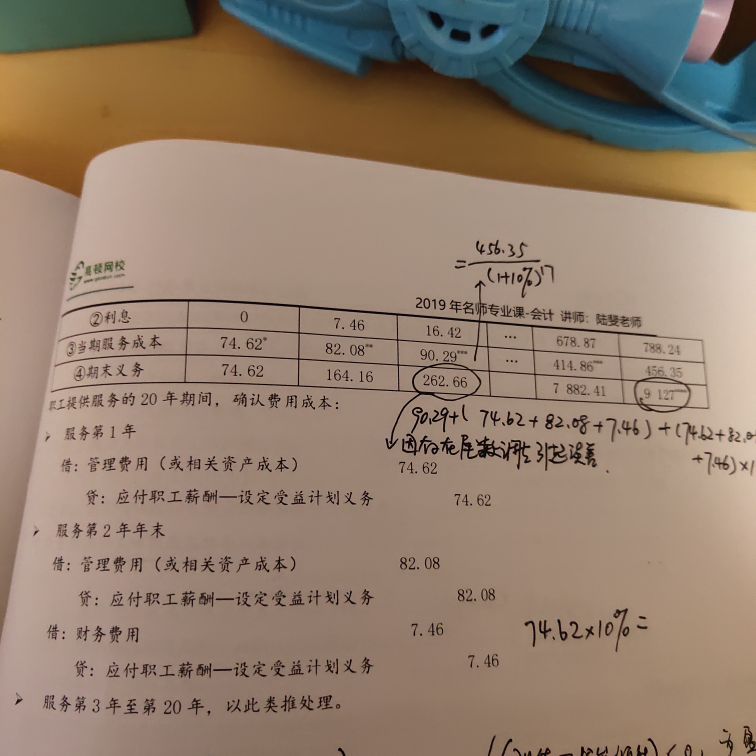 456.35
= (1+10%)17
高顿网校
2019年名师专业课-会计 讲师：陆斐老师
②利息 0 7.46 16.42 … 678.87 788.24
③当期服务成本 74.62* 82.08** 90.29*** … 414.86*** 456.35
④期末义务 74.62 164.16 262.66 7 882.41 9 127
职工提供服务的20年期间，确认费用成本：
90.29+( 74.62+82.08+7.46)+(74.62+82.0
+7.46)×1
➢ 服务第1年
因存在尾数调整引起误差.
借：管理费用（或相关资产成本） 74.62
贷：应付职工薪酬—设定受益计划义务 74.62
➢ 服务第2年年末
借：管理费用（或相关资产成本） 82.08
贷：应付职工薪酬—设定受益计划义务 82.08
借：财务费用 7.46
74.62×10%=
贷：应付职工薪酬—设定受益计划义务 7.46
➢ 服务第3年至第20年，以此类推处理。